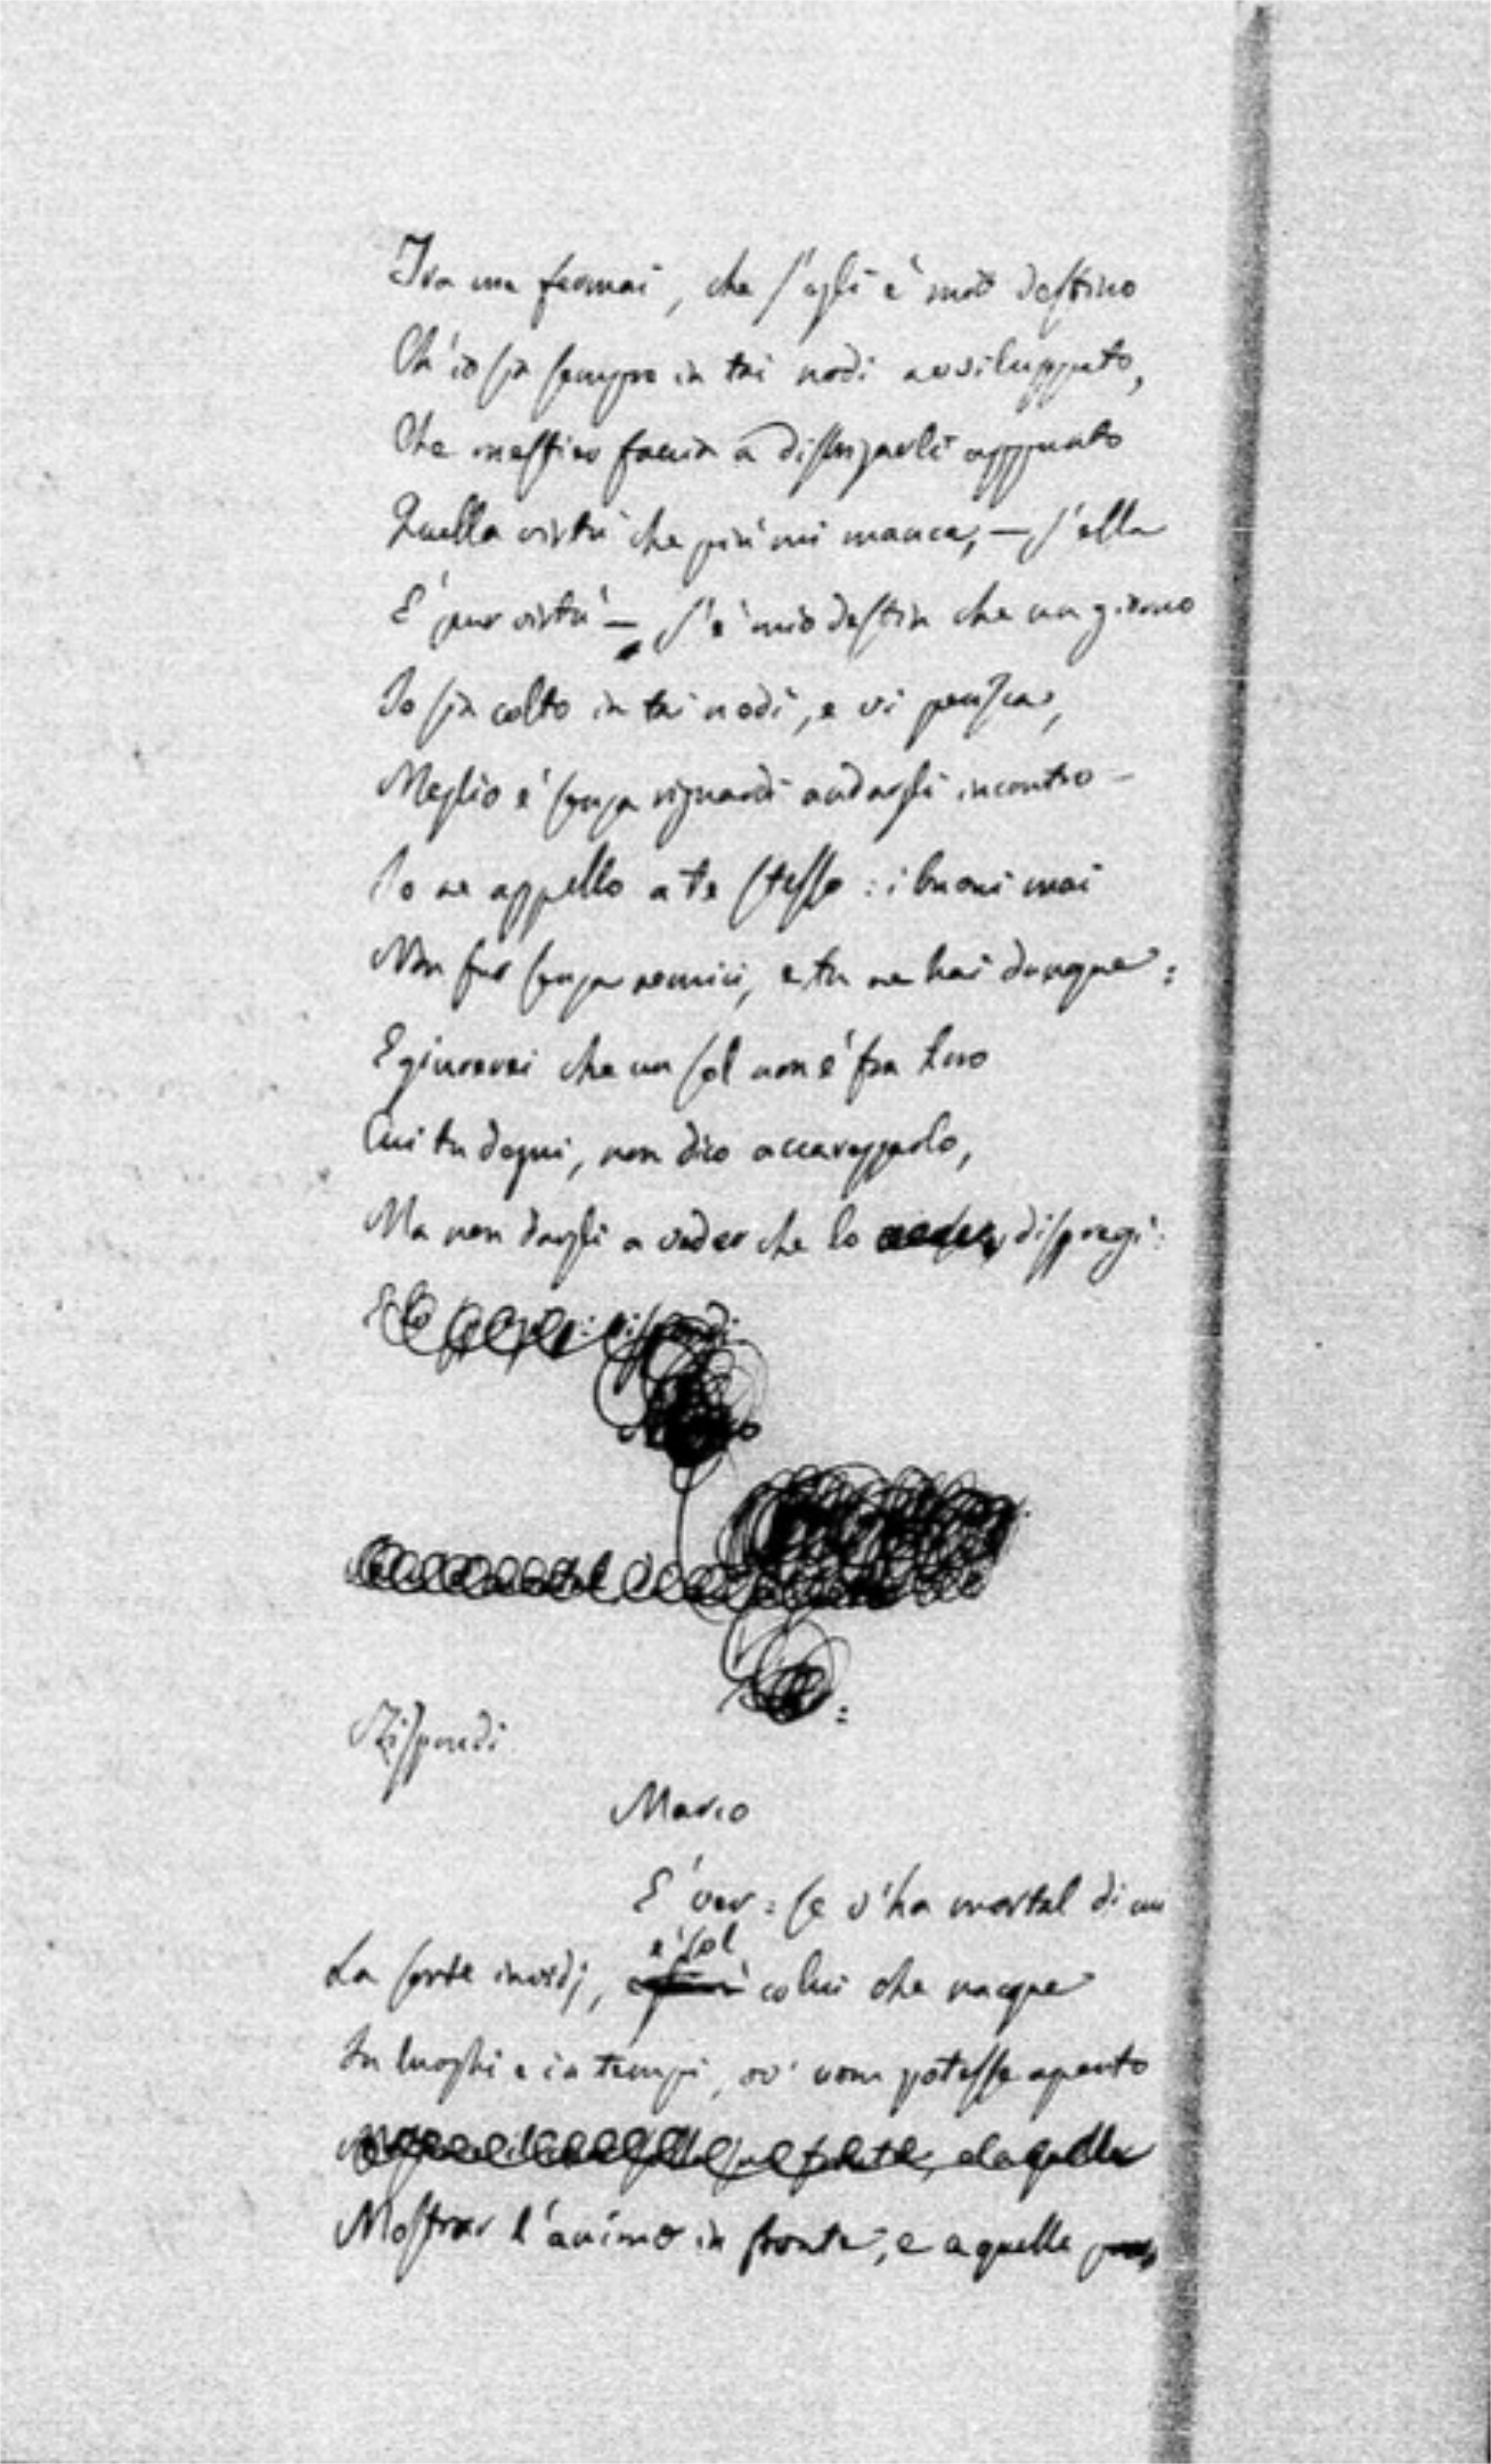 Fra me fermai, che s'egli è mio destino
Ch'io sia sempre in tai nodi avviluppato,
Che mestier faccia a distrigarli appunto
Quella virtù che più mi manca, — s'ella
È pur virtù — s'è mio destin che un giorno
Io sia colto in tai nodi, e vi perisca,
Meglio è senza riguardi andargli incontro —
Io ne appello a te stesso: i buoni mai
Non fur senza nemici, e tu ne hai dunque:
E giurerei che un sol non è fra loro
Cui tu degni, non dico accarezzarlo,
Ma non dargli a veder che lo dispregi:
Rispondi
Marco
È ver: se v'ha mortal di cui
La sorte invidj, è sol colui che nacque
In luoghi e in tempi, ov' uom potesse aperto
Mostrar l'animo in fronte, e a quelle